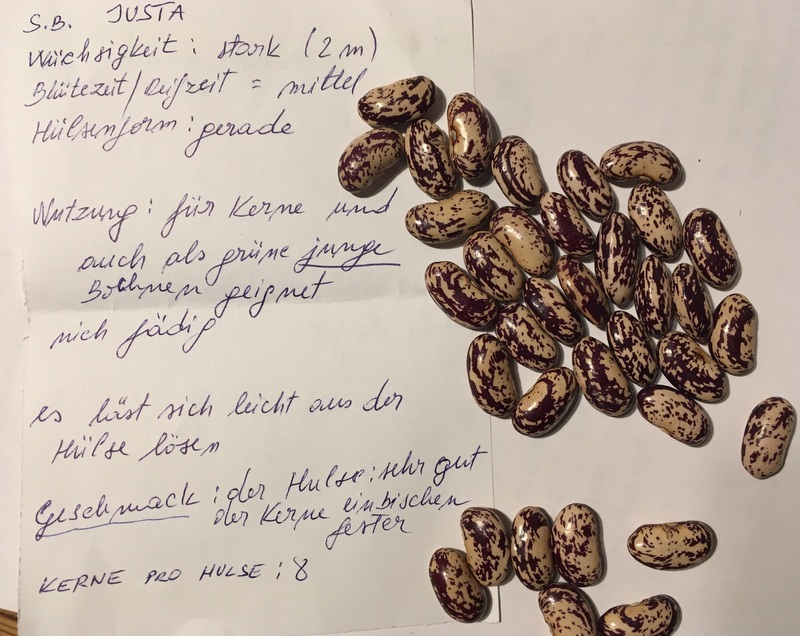 S.B. JUSTA
Wüchsigkeit: stark (2 m)
Blütezeit/Reifzeit = mittel
Hülsenform: gerade
Nutzung: für Kerne und
auch als grüne junge
Bohnen geignet
nich fädig
es läst sich leicht aus der
Hülse lösen
Geschmack: der Hulse: sehr gut
der Kerne einbischen
fester
KERNE PRO HULSE: 8